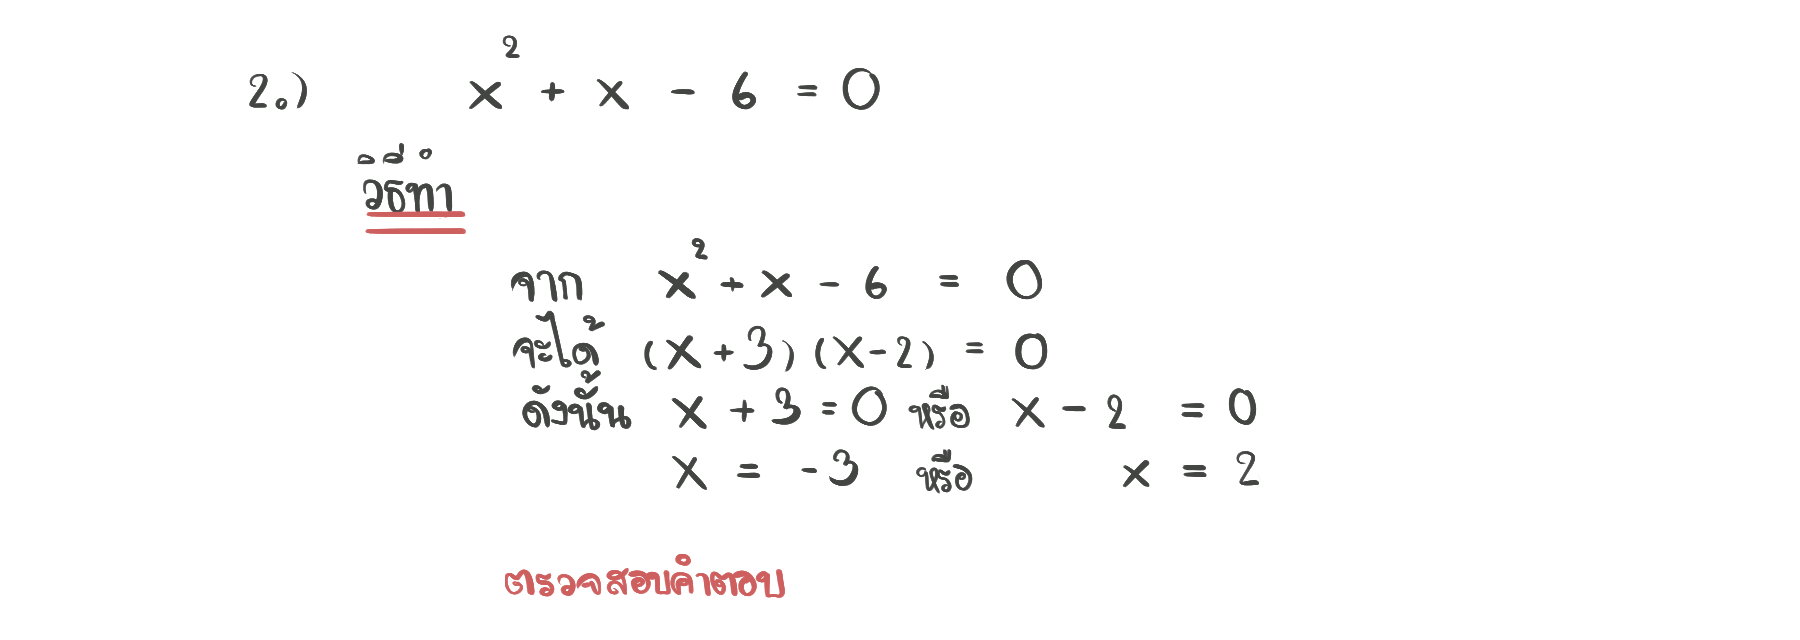 2.) x² + x - 6 = 0
วิธีทำ
จาก x² + x - 6 = 0
จะได้ (x + 3) (x - 2) = 0
ดังนั้น x + 3 = 0 หรือ x - 2 = 0
x = -3 หรือ x = 2
ตรวจสอบคำตอบ